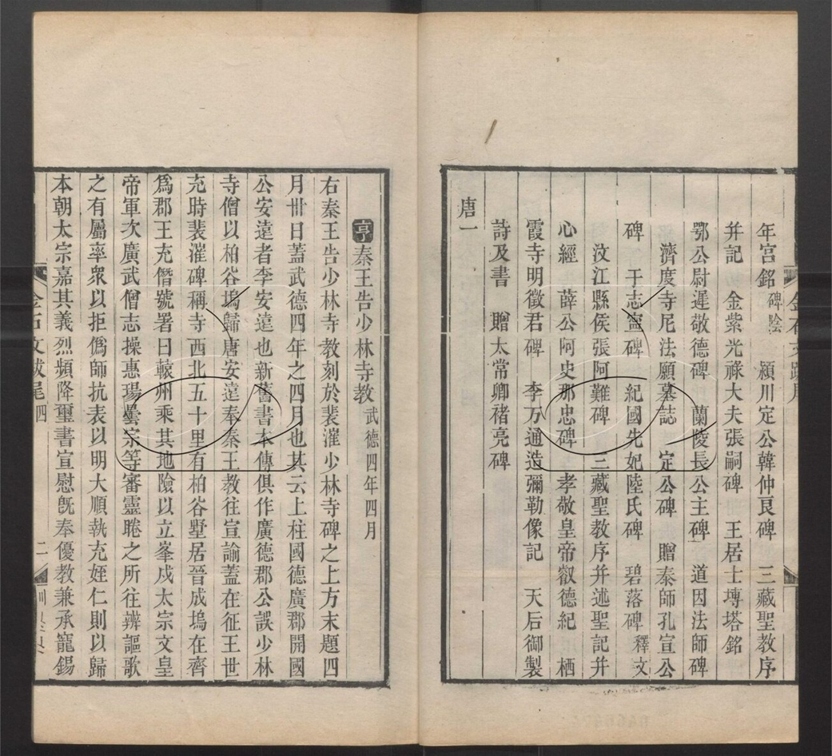 年宫銘 碑陰 潁川定公韓仲良碑 三藏聖教序
并記 金紫光祿大夫張嗣碑 王居士塼塔銘
鄂公尉遲敬德碑 蘭陵長公主碑 道因法師碑
濟度寺尼法願墓誌 定公碑 贈泰師孔宣公
碑 于志寧碑 紀國先妃陸氏碑 碧落碑 釋文
汶江縣侯張阿難碑 三藏聖教序并述聖記并
心經 薛公阿史那忠碑 孝敬皇帝叡德紀 栖
霞寺明徵君碑 李万通造彌勒像記 天后御製
詩及書 贈太常卿褚亮碑
唐一
秦王告少林寺教 武德四年四月
右秦王告少林寺教刻於裴漼少林寺碑之上方末題四
月卅日蓋武德四年之四月也其云上柱國德廣郡開國
公安遠者李安遠也新舊書本傳俱作廣德郡公誤少林
寺僧以柏谷塢歸唐安遠奉秦王教往宣諭蓋在征王世
充時裴漼碑稱寺西北五十里有柏谷墅居晉成塢在齊
爲郡王充僭號署曰轘州乘其地險以立峯戍太宗文皇
帝軍次廣武僧志操惠瑒曇宗等審靈睠之所往辨謳歌
之有屬率衆以拒僞師抗表以明大順執充姪仁則以歸
本朝太宗嘉其義烈頻降璽書宣慰旣奉優教兼承寵錫
金石文跋尾四
二